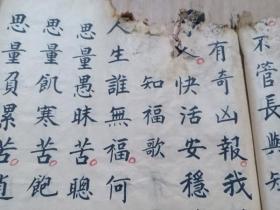 不管長與
有奇凶報我
人快活安穩
知福歌
人生誰無福何
思量愚昧苦聰
思量飢寒苦飽
思量負累苦